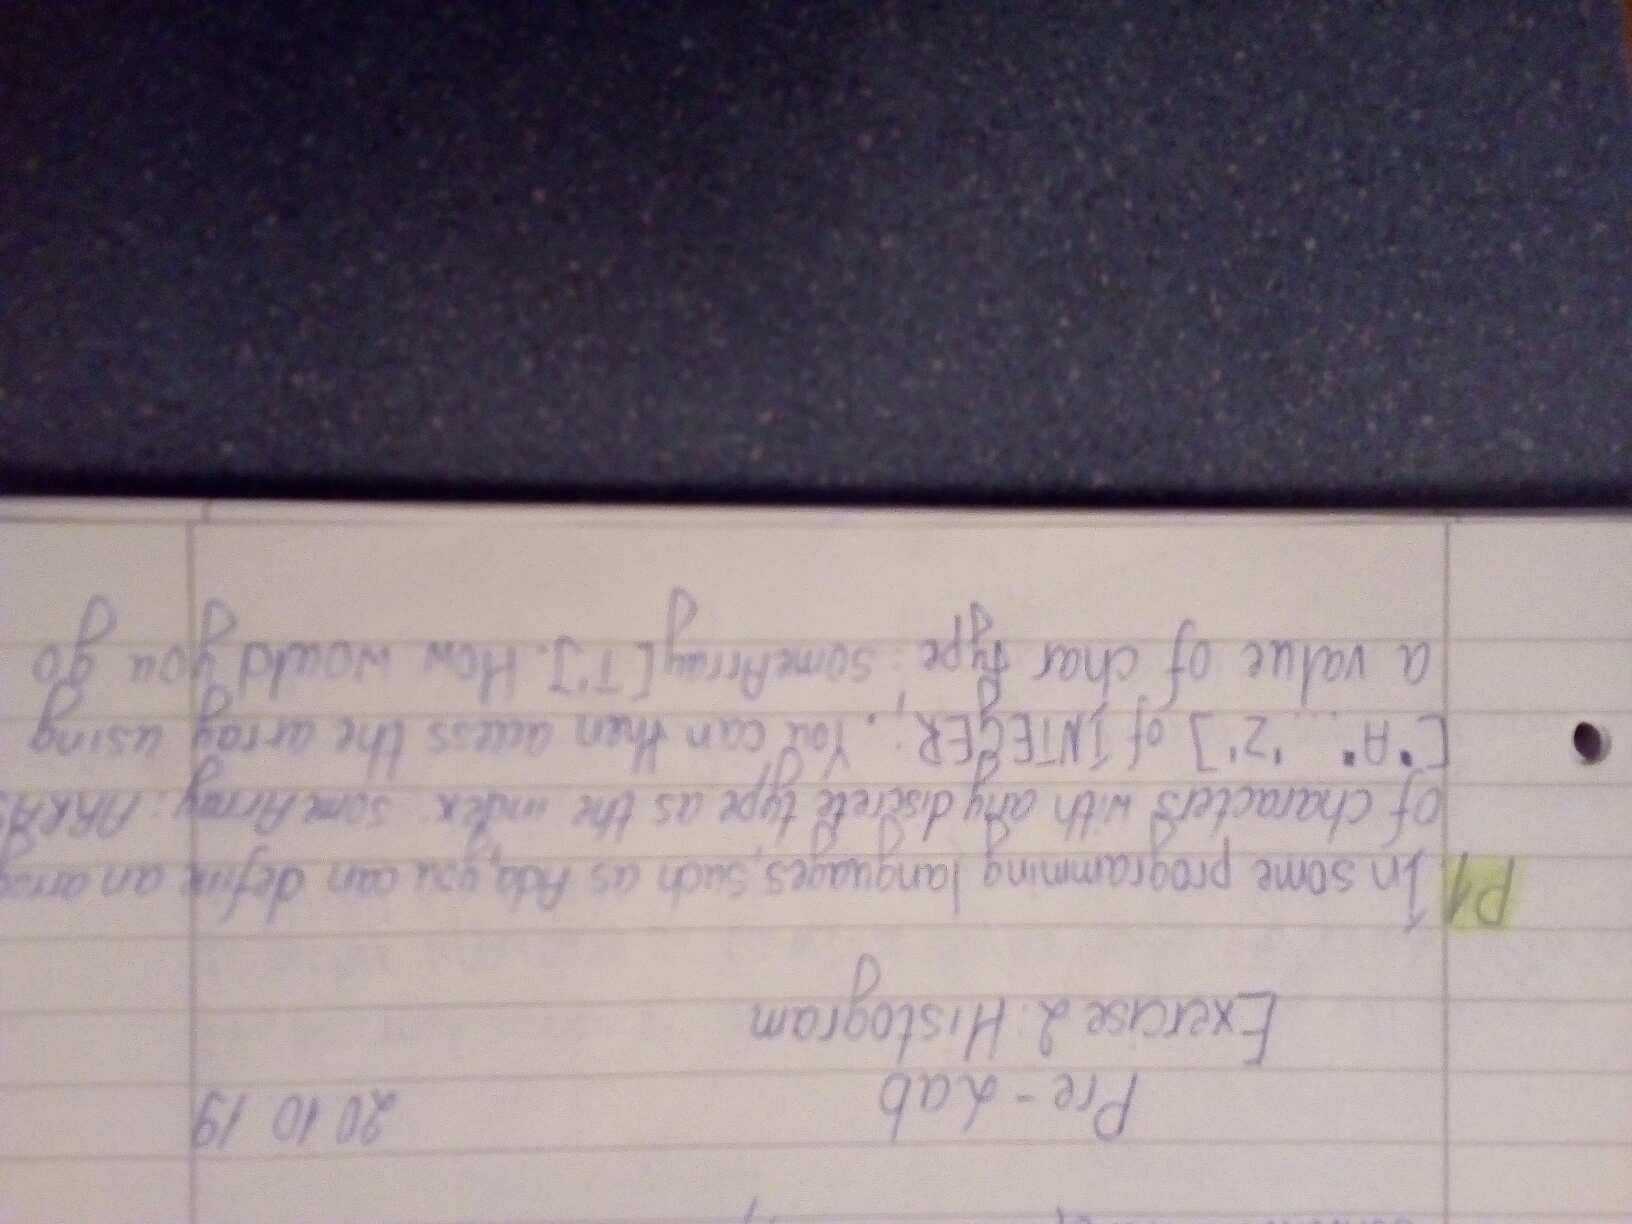 Pre-Lab 20 10 19
Exercise 2: Histogram
P1. In some programming languages, such as Ada, you can define an array
of characters with any discrete type as the index someArray: ARRAY
["A"...'Z'] of INTEGER;. You can then access the array using
a value of char type: someArray['T']. How would you go